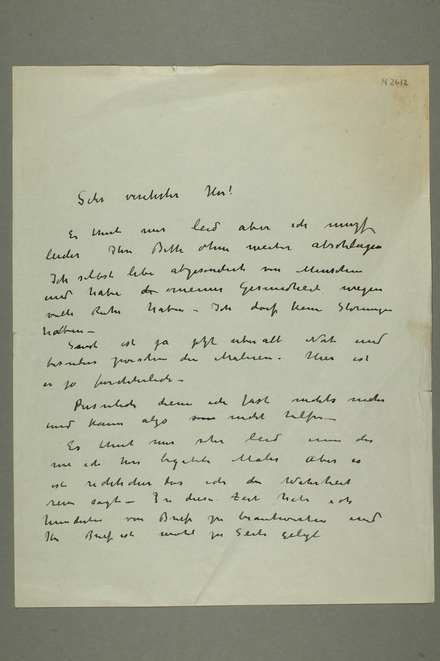 N 2612
Sehr verehrter Herr!
Es thut mir leid aber ich muß
leider Ihre Bitte ohne weiter abschlagen
Ich selbst lebe abgesondert von Menschen
und habe meiner Gesundheit wegen
viele Ruhe haben – Ich darf keine Störungen
haben –
Sonst ist ja jetzt überall Not und
besonders zwischen den Malern. Hier ist
es ja fürchterlich –
Persönlich diene ich fast nichts mehr
und kann also nicht helfen –
Es thut mir sehr leid
wie ich begabter Maler Aber es
ist das ich die Wahrheit
sagt – In dieser Zeit hatte ich
hunderte von Briefe zu beantworten und
Ihr Brief ist wohl zur Seite gelegt